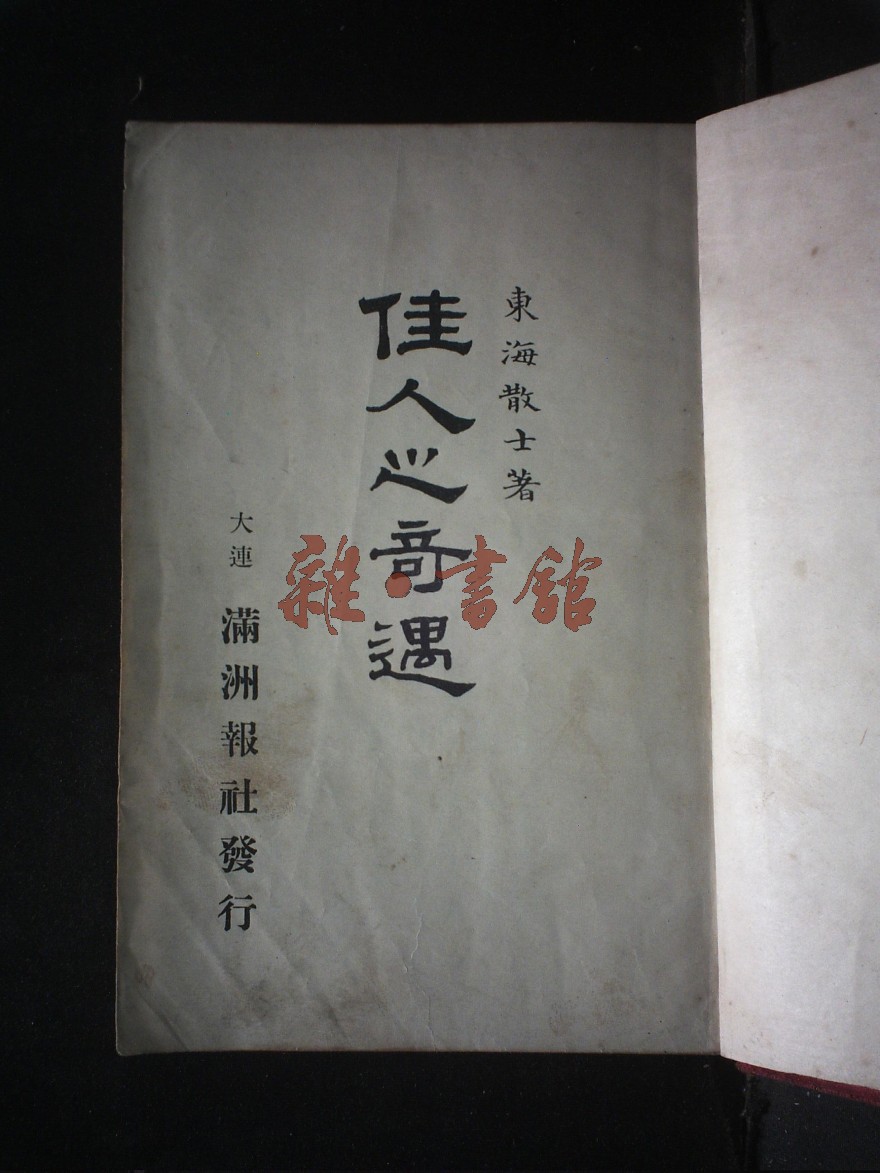 東海散士著
佳人之奇遇
大連 滿洲報社發行
雜·書館